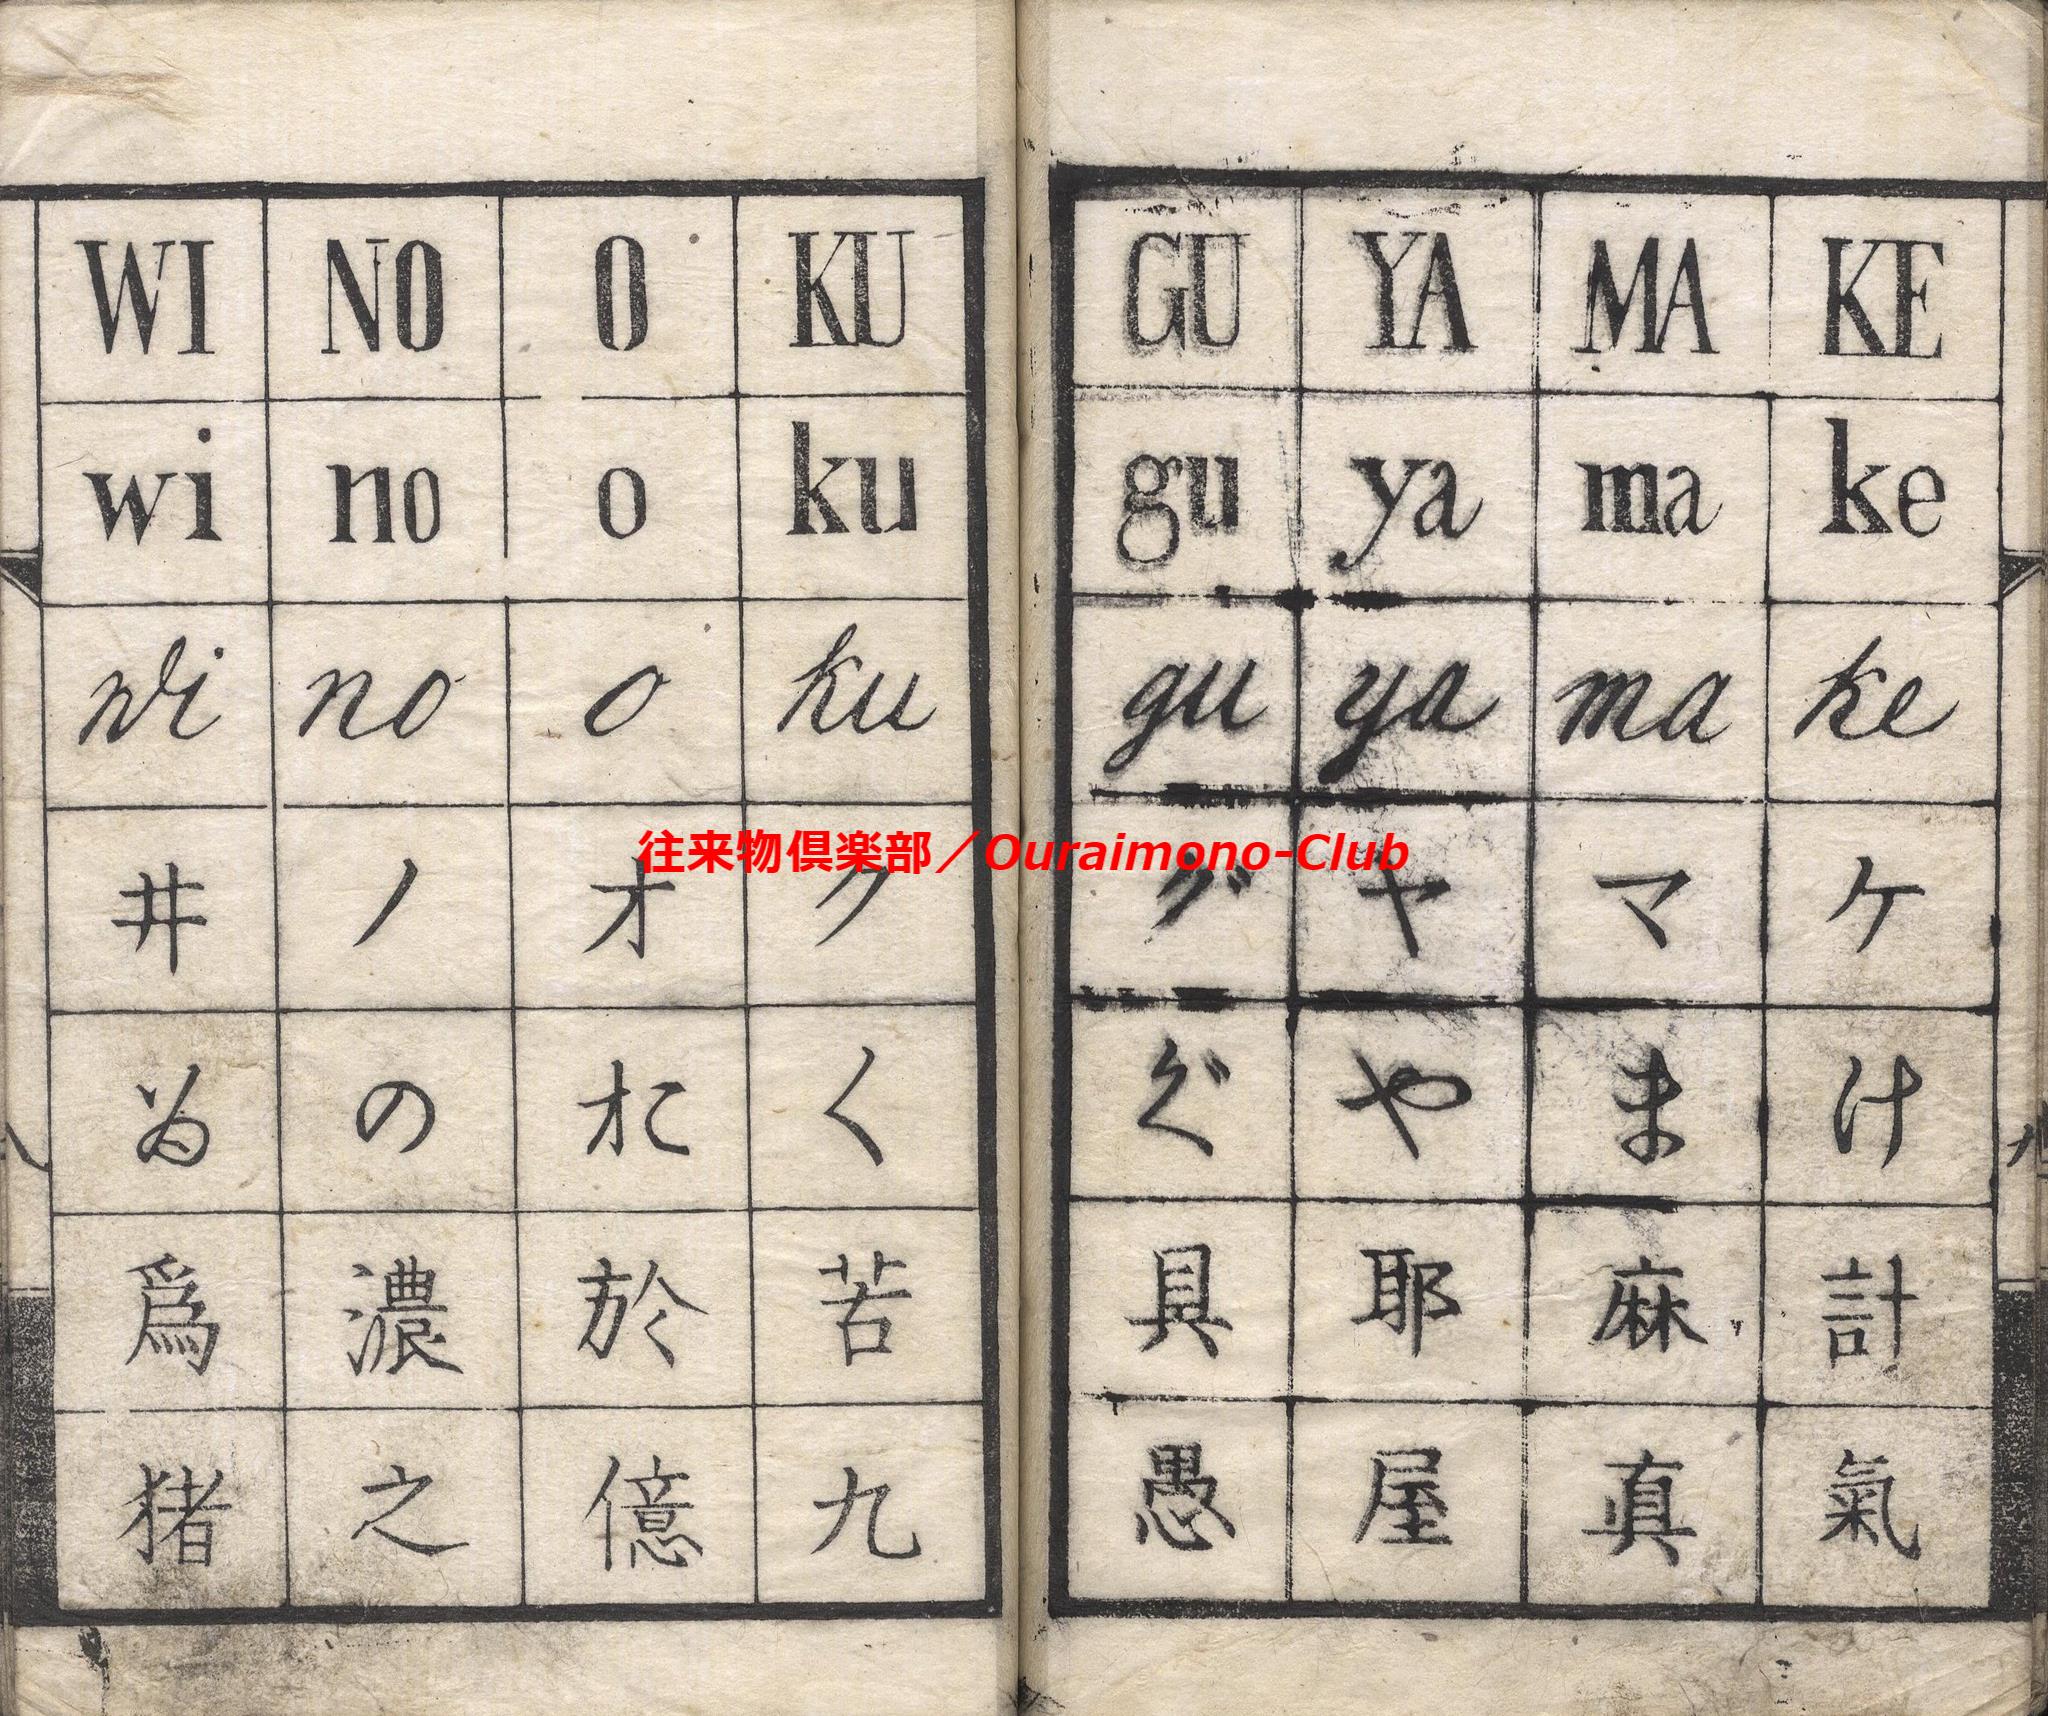 KE MA YA GU
ke ma ya gu
ke ma ya gu
ケ マ ヤ グ
け ま や ぐ
計 麻 耶 具
氣 真 屋 愚
KU O NO WI
ku o no wi
ku o no wi
ク オ ノ 井
く お の ゐ
苦 於 濃 爲
九 億 之 猪
往来物倶楽部／Ouraimono-Club